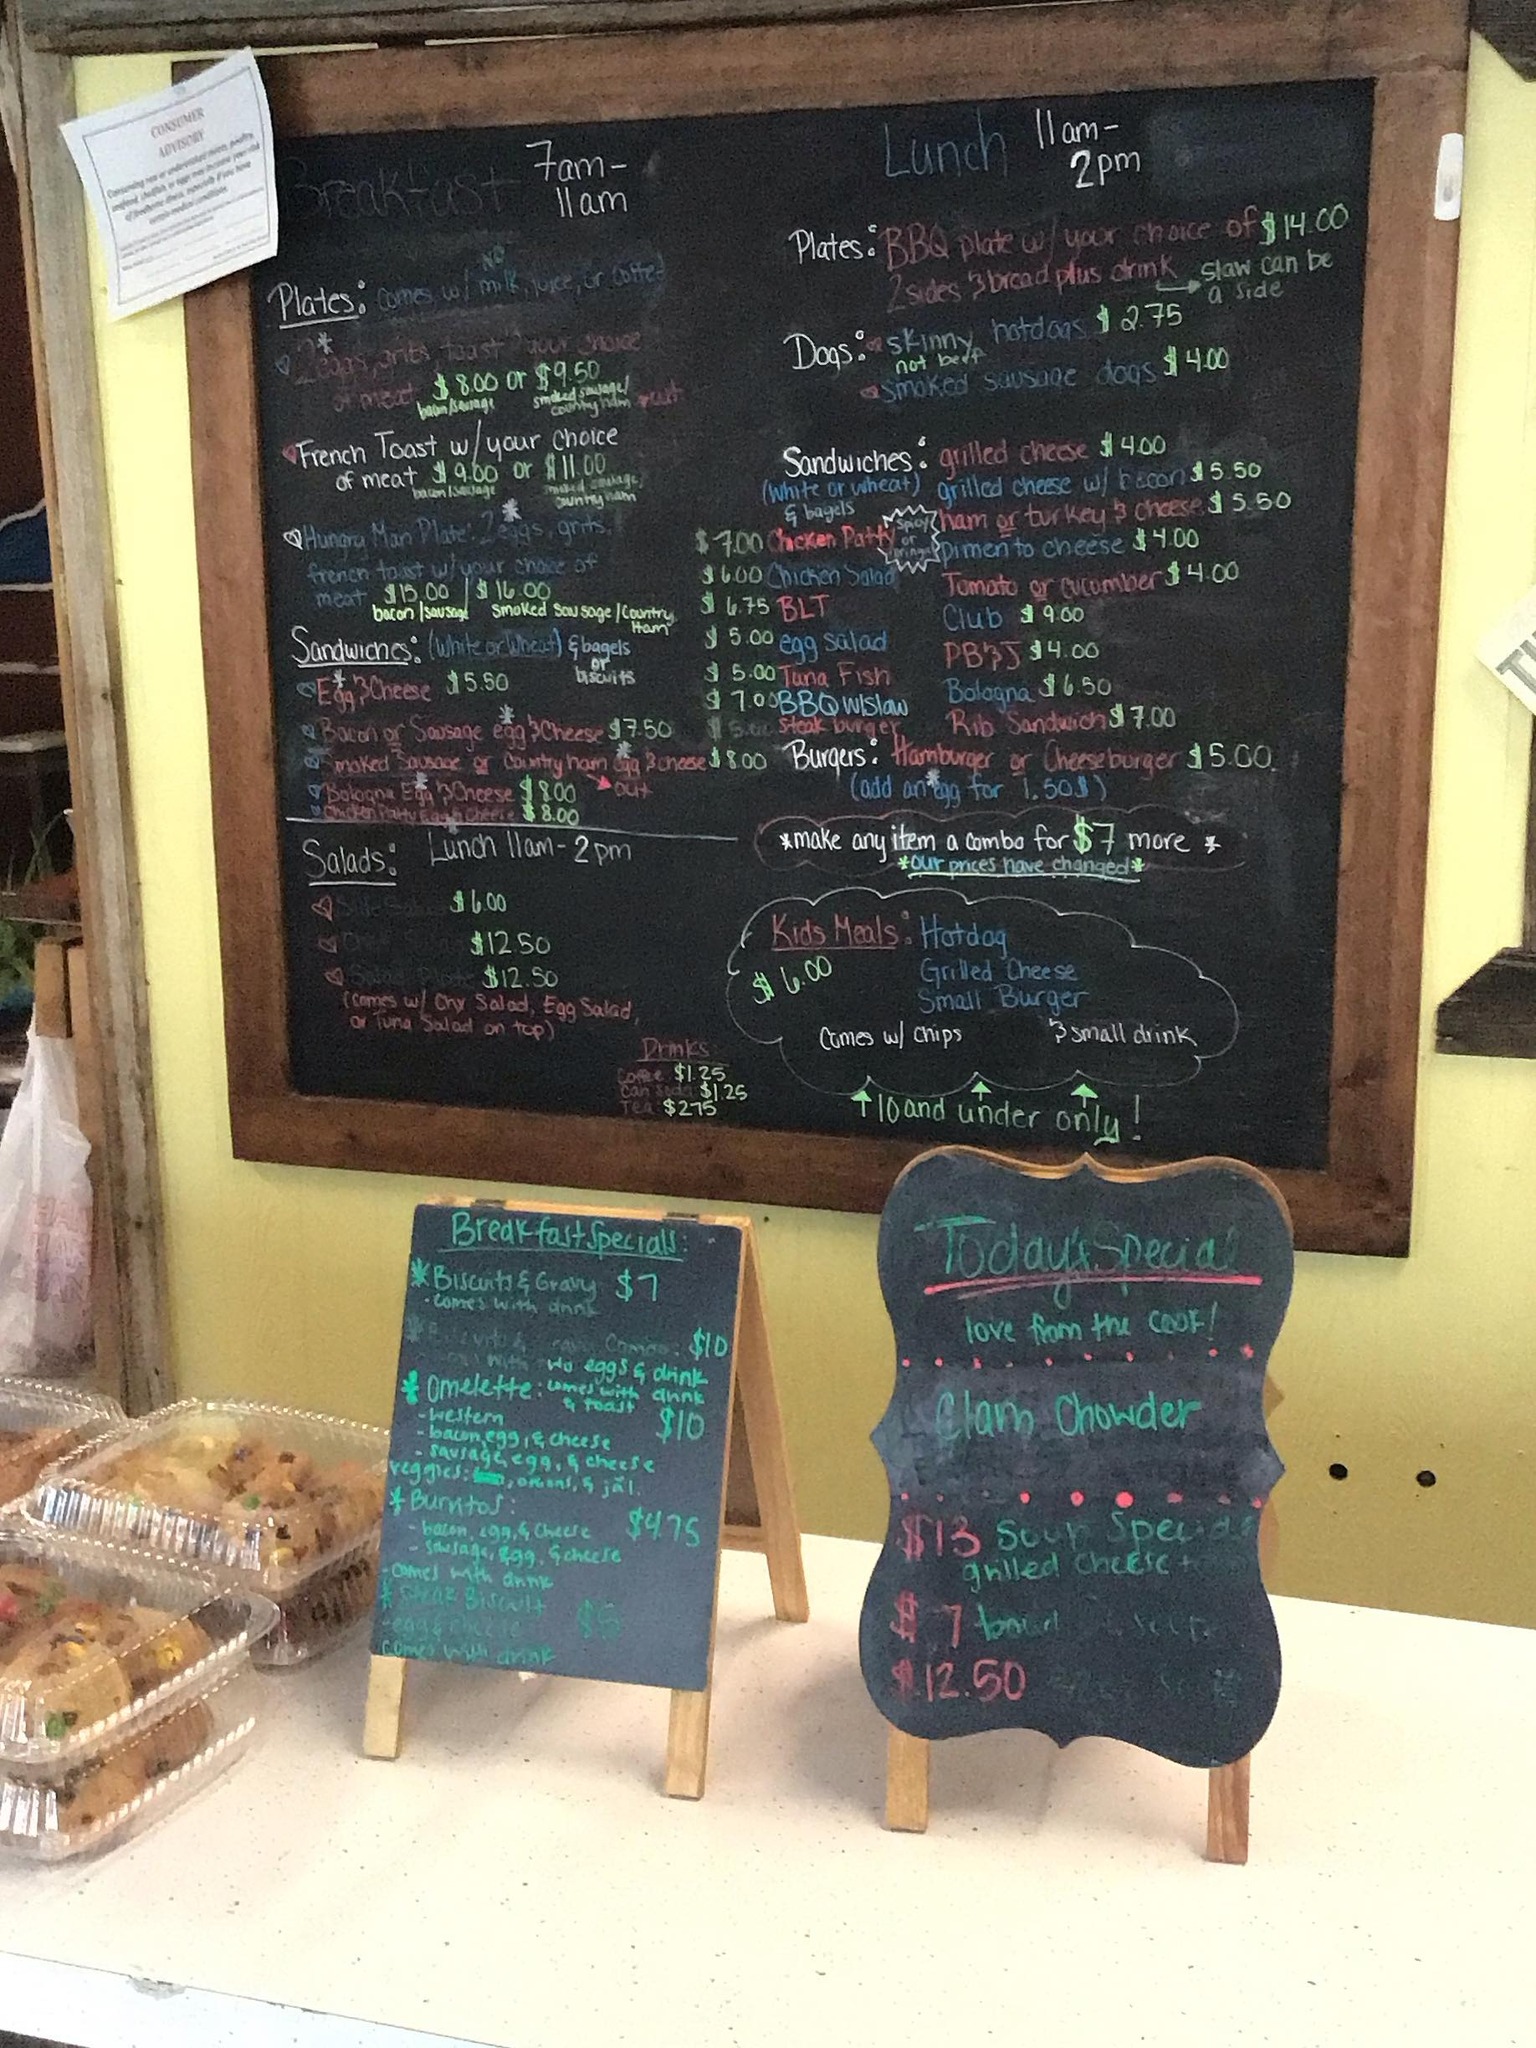 CONSUMER
ADVISORY
Breakfast 7am-
11am
Plates: Comes w/ NO milk, juice, or coffee
2* eggs, grits, toast & your choice
of meat $8.00 or $9.50
bacon/sausage smoked sausage/
country ham out
French Toast w/ your choice
of meat $9.00 or $11.00
bacon/sausage smoked sausage/
country ham
Hungry Man Plate: 2* eggs, grits,
french toast w/ your choice of
meat $15.00 / $16.00
bacon/sausage smoked sausage/Country
Ham
Sandwiches: (White or Wheat) & bagels
or
biscuits
Egg* & Cheese $5.50
Bacon or Sausage egg* & Cheese $7.50
Smoked Sausage or Country ham egg* & cheese $8.00
Bologna Egg* & Cheese $8.00 out
Chicken Patty Egg & Cheese $8.00
Salads: Lunch 11am-2pm
Side $6.00
$12.50
Salad Plate $12.50
(Comes w/ Chx Salad, Egg Salad,
or Tuna Salad on top)
Drinks:
Coffee $1.25
Can Soda $1.25
Tea $2.75
Lunch 11am-
2pm
Plates: BBQ plate w/ your choice of $14.00
2 sides & bread plus drink → slaw can be
a side
Dogs: skinny hotdogs $2.75
not beef
smoked sausage dogs $4.00
Sandwiches: grilled cheese $4.00
(white or wheat) grilled cheese w/ bacon $5.50
& bagels
ham or turkey & cheese $5.50
$7.00 Chicken Patty spicy or pimento cheese $4.00
$6.00 Chicken Salad Tomato or cucumber $4.00
$6.75 BLT Club $9.00
$5.00 egg salad PB&J $4.00
$5.00 Tuna Fish Bologna $6.50
$7.00 BBQ w/slaw Rib Sandwich $7.00
steak burger
Burgers: Hamburger or Cheeseburger $5.00
(add an* egg for 1.50$)
*make any item a combo for $7 more *
*our prices have changed*
Kids Meals: Hotdog
$6.00 Grilled Cheese
Small Burger
Comes w/ chips & small drink
↑10 and under only!
Breakfast Specials:
*Biscuits & Gravy $7
-comes with drink
$10
with two eggs & drink
* Omelette: comes with drink
& toast $10
-western
-bacon, egg, & cheese
-sausage, egg, & cheese
veggies: , onions, & jal.
* Burritos:
-bacon, egg, & cheese $4.75
-sausage, egg, & cheese
-comes with drink
* Steak Biscuit $5
-egg & cheese
comes with drink
Today's Special
love from the cook!
Clam Chowder
$13 Soup Special
grilled cheese +
$7 bowl
$12.50